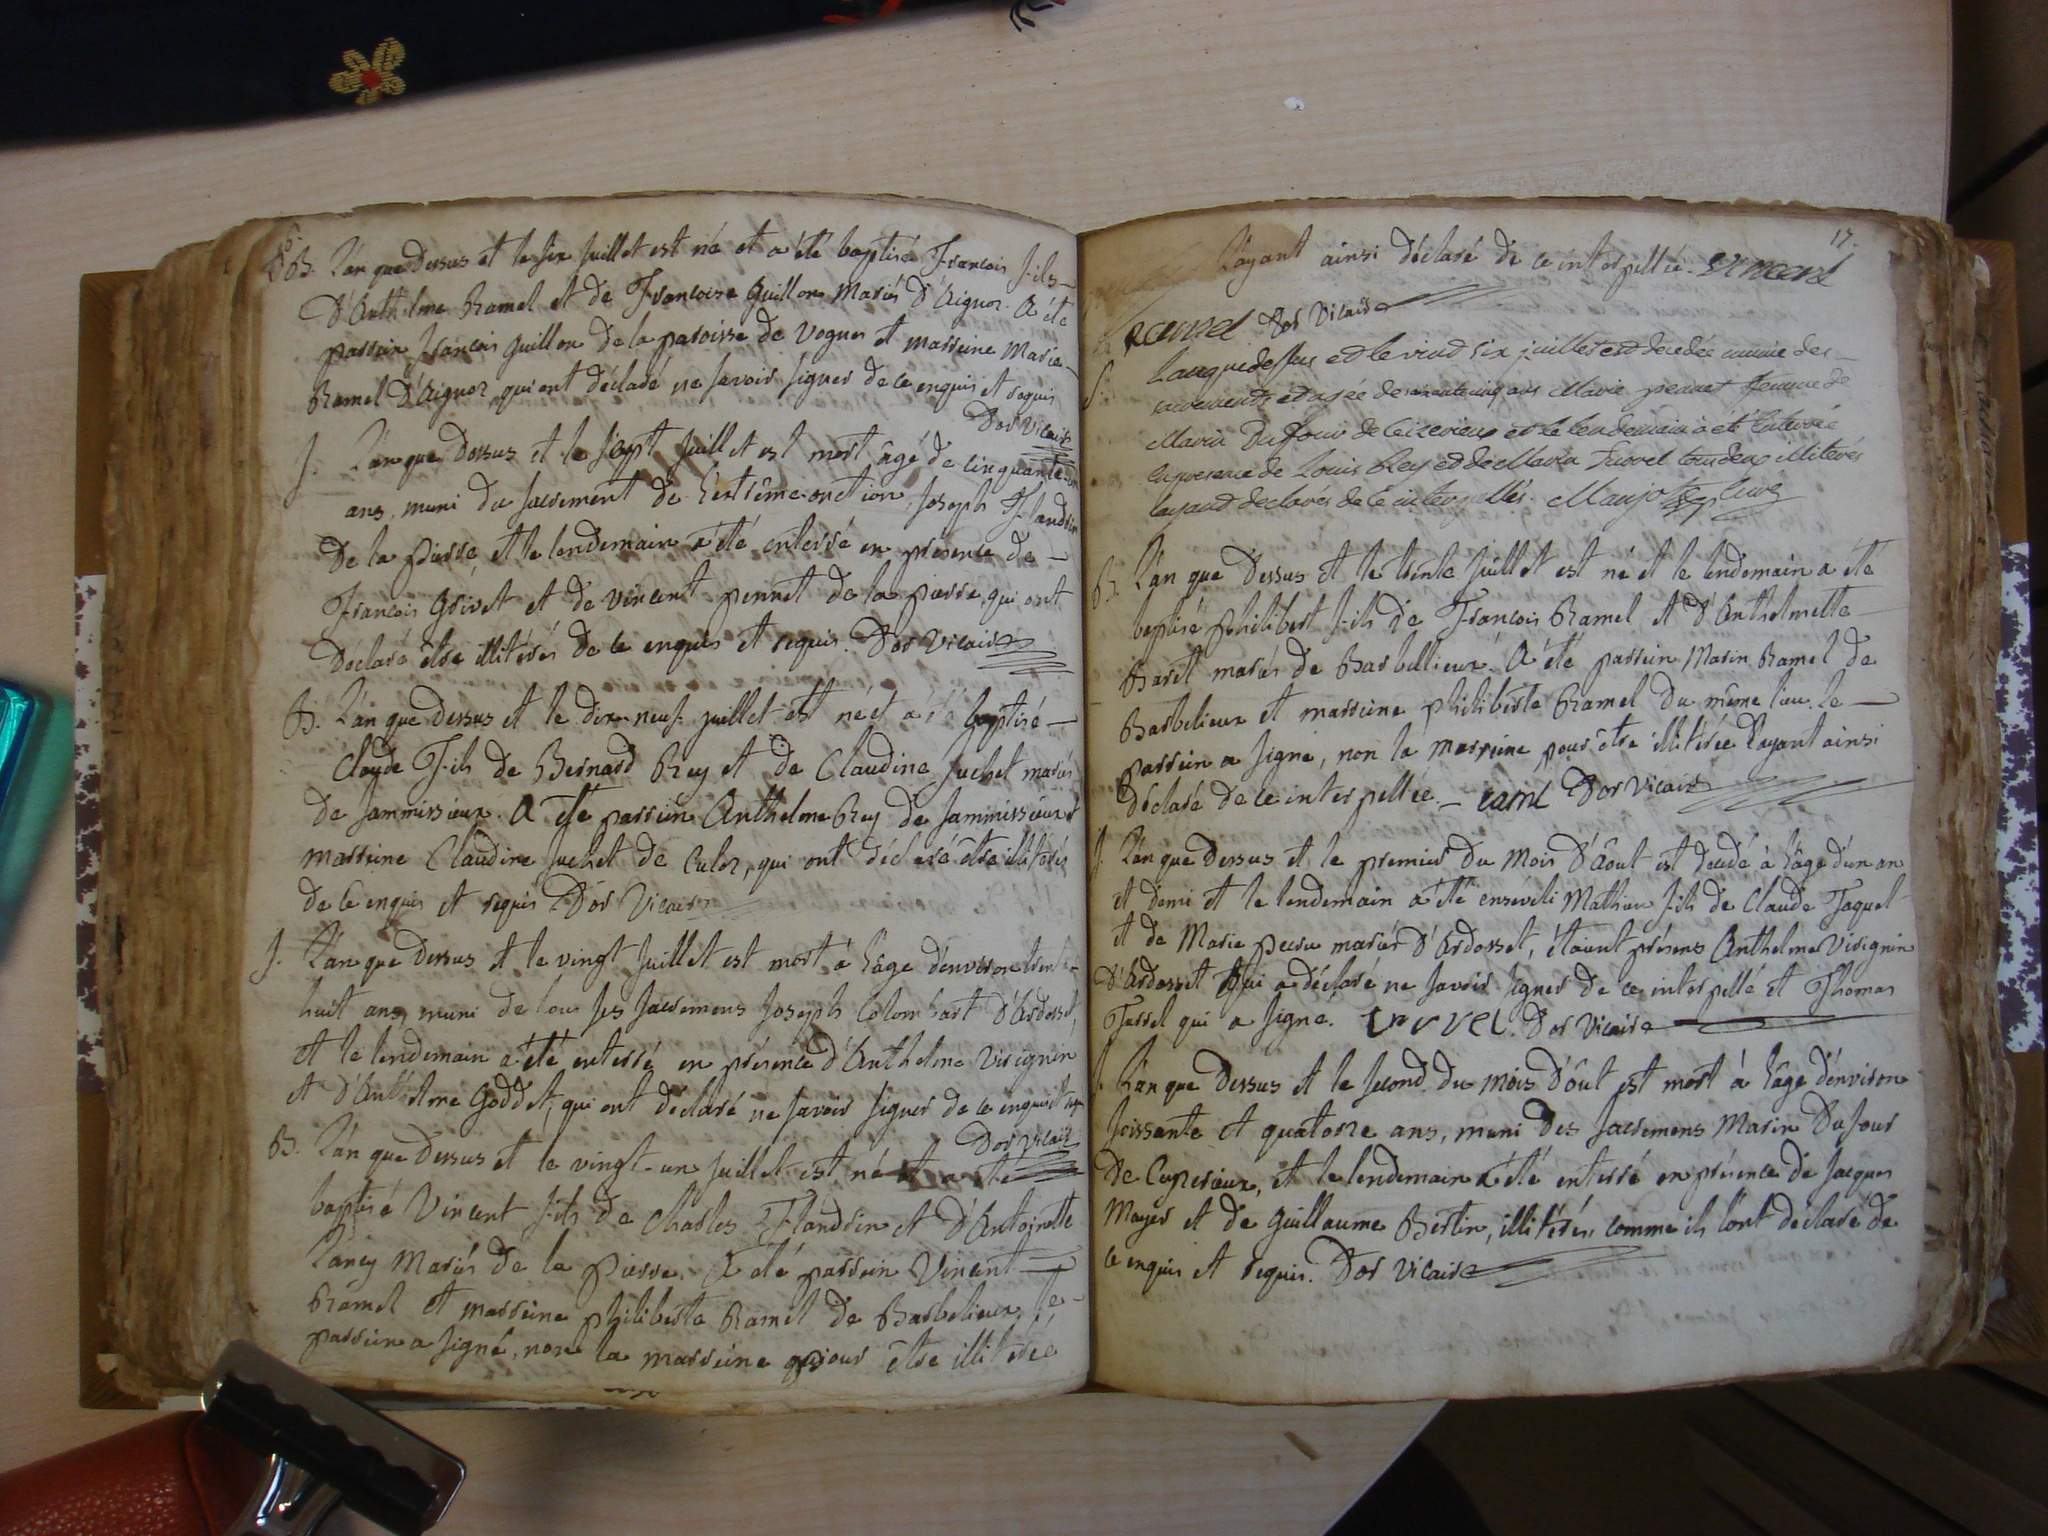 B. L'an que Dessus et le six Juillet est né et a été baptisé François fils
D'Anthelme Ramel et de Françoise Guillon Mariés D'Aignoz. A été
parrein François Guillon De la paroisse de Vognes et marreine Marie
Ramel D'Aignoz, qui ont déclaré ne savoir signer de ce enquis et requis
Dor Vicaire
S. L'an que Dessus et le sept Juillet est mort âgé de cinquante
ans, muni du sacrement de l'extrême-onction, Joseph Flandrin
De la pierre, et le lendemain a été enterré en présence de
François Grivet et de Vincent pennet de la pierre, qui ont
Déclaré être illiterés De ce enquis et requis. Dor Vicaire
B. L'an que Dessus et le dix-neuf juillet est né et a été baptisé
Claude Fils de Bernard Rey et de Claudine Juchet mariés
de Jammissieux. A été parrein Anthelme Rey de Jammissieux et
marreine Claudine Juchet de Culoz, qui ont déclaré être illiterés
de ce enquis et requis Dor Vicaire
S. L'an que Dessus et le vingt Juillet est mort à l'âge d'environ trente
huit ans, muni de tou ses sacremens Joseph Colombart D'Ardosset,
et le lendemain a été enterré en présence d'Anthelme Virignin
et D'Anthelme Goddet, qui ont déclaré ne savoir signer de ce enquis et
Dor Vicaire
B. L'an que Dessus et le vingt-un Juillet est né et a été
baptisé Vincent fils de Charles Flandrin et D'Antoinette
Lancy Mariés De la Pierre. A été parrein Vincent
Ramel et marreine philiberte Ramel de Barbelieux, le
parrein a signé, non la marreine pour être illiterée
17.
L'ayant ainsi déclaré de ce interpellée. vincent
ramel Dor Vicaire
S. Lanquedessus et le vint six juillet est decedée munie des
sacrements et agée de cinq ans Marie pennet femme de
Marin Dufour de Ceizerieux et le lendemain a été enterrée
en presence de Louis Rey et de Marin Turrel tous deux illiterés
layant declarés de ce interpellés. Maujot curé
B. L'an que Dessus et le trente Juillet est né et le lendemain a été
baptisé philibert fils de François Ramel et d'Anthelmette
Baret mariés de Barbellieux. A été parrein Marin Ramel de
Barbelieux et marreine philiberte Ramel du même lieu. le
parrein a signé, non la marreine pour être illiterée l'ayant ainsi
déclaré de ce interpellée. Dor Vicaire
S. L'an que Dessus et le premier Du Mois D'Août est décédé à l'âge d'un an
et demi et le lendemain a été enseveli Mathieu fils de Claude Jaquet
et de Marie mariés D'Ardosset, étaient présens Anthelme Virignin
D'Ardosset qui a déclaré ne savoir signer de ce interpellé et Thomas
Turrel qui a signé. turrel. Dor Vicaire
S. L'an que Dessus et le second du Mois D'Oût est mort à l'âge d'environ
soissante et quatorze ans, muni des sacremens Marin Dufour
De Cuzerieux, et le lendemain a été enterré en présence de Jacques
Mayer et de Guillaume Bertin, illiterés comme ils l'ont déclaré de
ce enquis et requis. Dor Vicaire